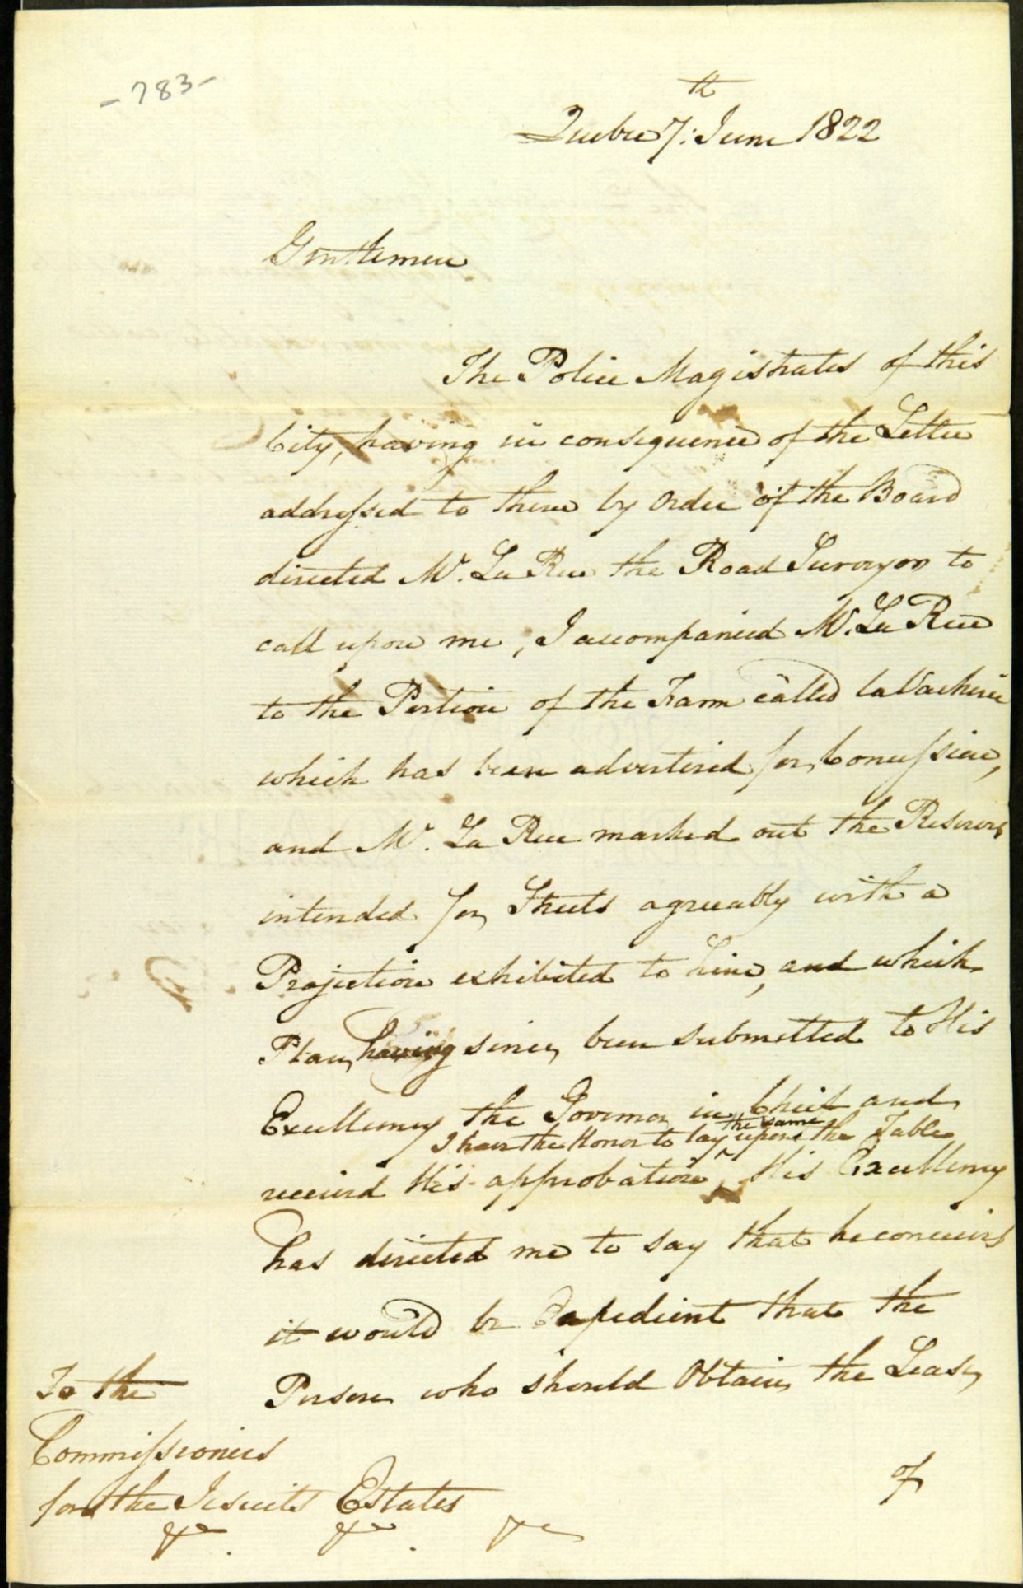 - 783 -
th
Quebec 7: June 1822
Gentlemen
The Police Magistrates of this
City, having in consequence of the Letter
addressed to them by Order of the Board
directed Mr. La Rue the Road Surveyor to
call upon me, I accompanied Mr. La Rue
to the Portion of the Farm called la Vacherie
which has been advertised for Concession,
and Mr. La Rue marked out the Reserves
intended for Streets agreeably with a
Projection exhibited to him, and which
Plan, having since, been submitted to His
Excellency the Governor in Chief and
the same
I have the Honor to lay ^ upon the Table
received His approbation, His Excellency
has directed me to say that he conceives
it would be Expedient that the
Person who should Obtain the Lease,
of
To the
Commissioners
for the Jesuits Estates
&c. &c. &c